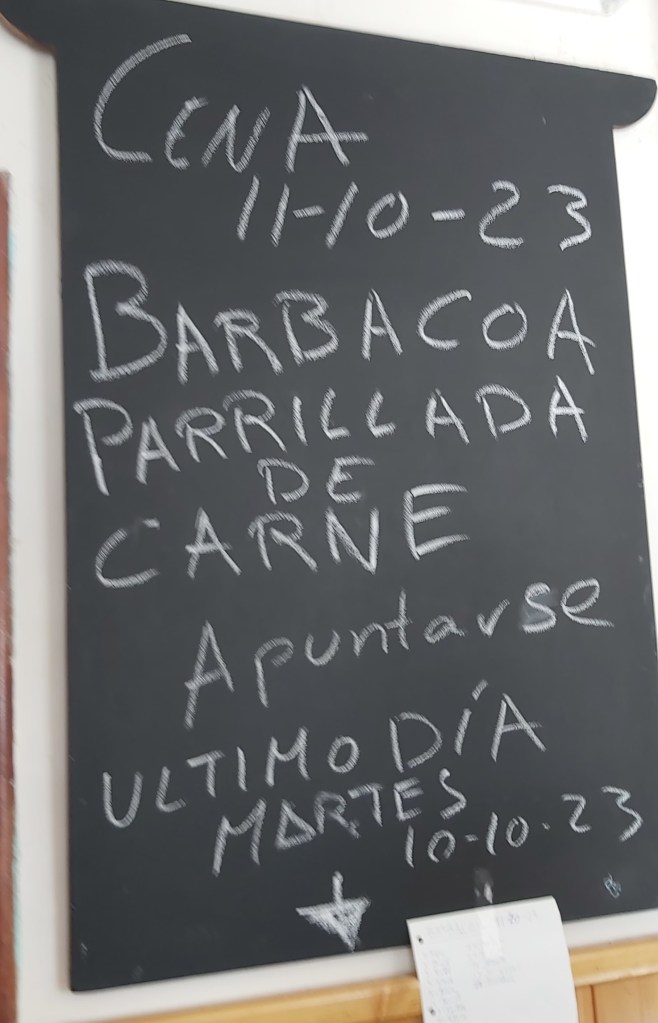 CENA
11-10-23
BARBACOA
PARRILLADA
DE
CARNE
Apuntarse
ULTIMO DÍA
MARTES
10-10-23